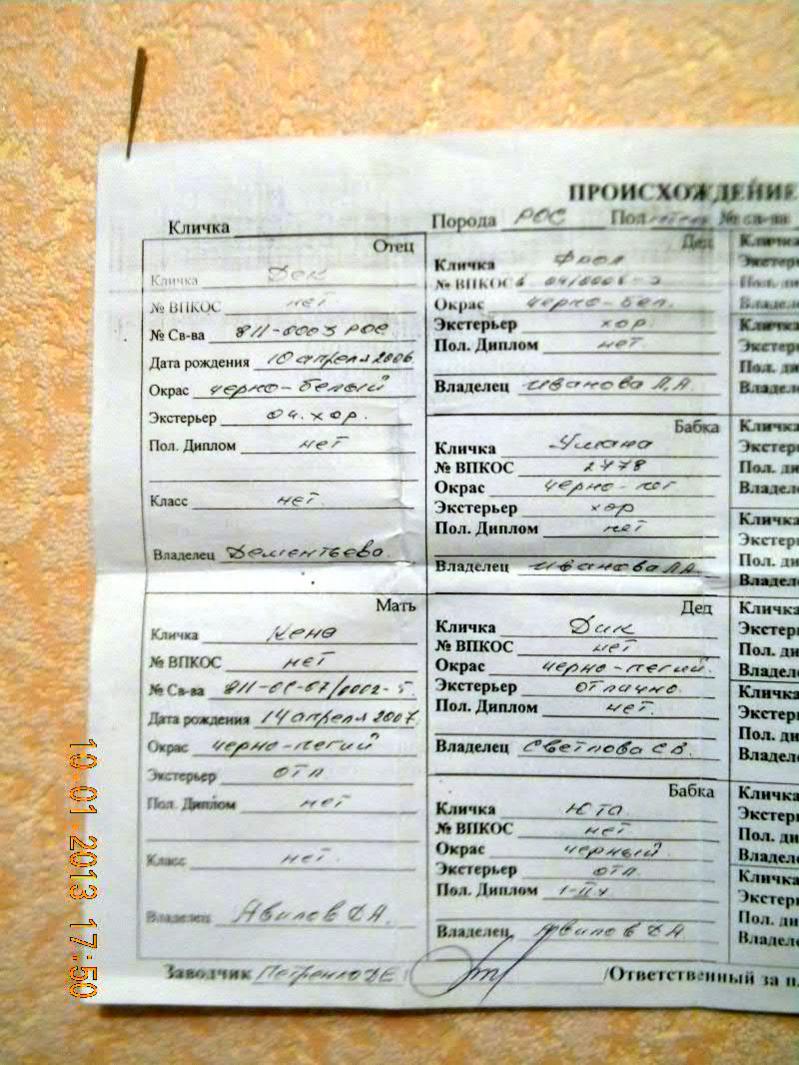 ПРОИСХОЖДЕНИЕ
Кличка Порода РОС Пол № св-ва
Отец
Кличка Дек
№ ВПКОС нет
№ Св-ва 811-0003 РОС
Дата рождения 10 апреля 2006
Окрас черно-белый
Экстерьер оч. хор.
Пол. Диплом нет
Класс нет.
Владелец Дементьева.
Мать
Кличка Кена
№ ВПКОС нет
№ Св-ва 811-0С-07/0002-Г
Дата рождения 14 апреля 2007.
Окрас черно-пегий
Экстерьер отл
Пол. Диплом нет
Класс нет.
Владелец Авилов Д.А.
Дед
Кличка Фрол
№ ВПКОС
Окрас черно-бел.
Экстерьер хор.
Пол. Диплом нет.
Владелец Иванова Л.А.
Бабка
Кличка
№ ВПКОС 2778
Окрас черно-пег
Экстерьер хор
Пол. Диплом нет
Владелец Иванова Л.А.
Дед
Кличка Дик
№ ВПКОС нет
Окрас черно-пегий.
Экстерьер отлично.
Пол. Диплом нет.
Владелец Светлова С.В.
Бабка
Кличка Юта
№ ВПКОС нет
Окрас черный.
Экстерьер отл.
Пол. Диплом
Владелец Авилов Д.А.
Кличка
Экстерь
Пол. ди
Владеле
Кличка
Экстерь
Пол. ди
Владеле
Кличка
Экстерь
Пол. ди
Владеле
Кличка
Экстерь
Пол. ди
Владеле
Кличка
Экстерь
Пол. ди
Владеле
Кличка
Экстерь
Пол. ди
Владеле
Кличка
Экстерь
Пол. ди
Владеле
Кличка
Экстерь
Пол. ди
Владеле
Заводчик Петренко Д.Е. /Ответственный за п
10 01 2013 17:50